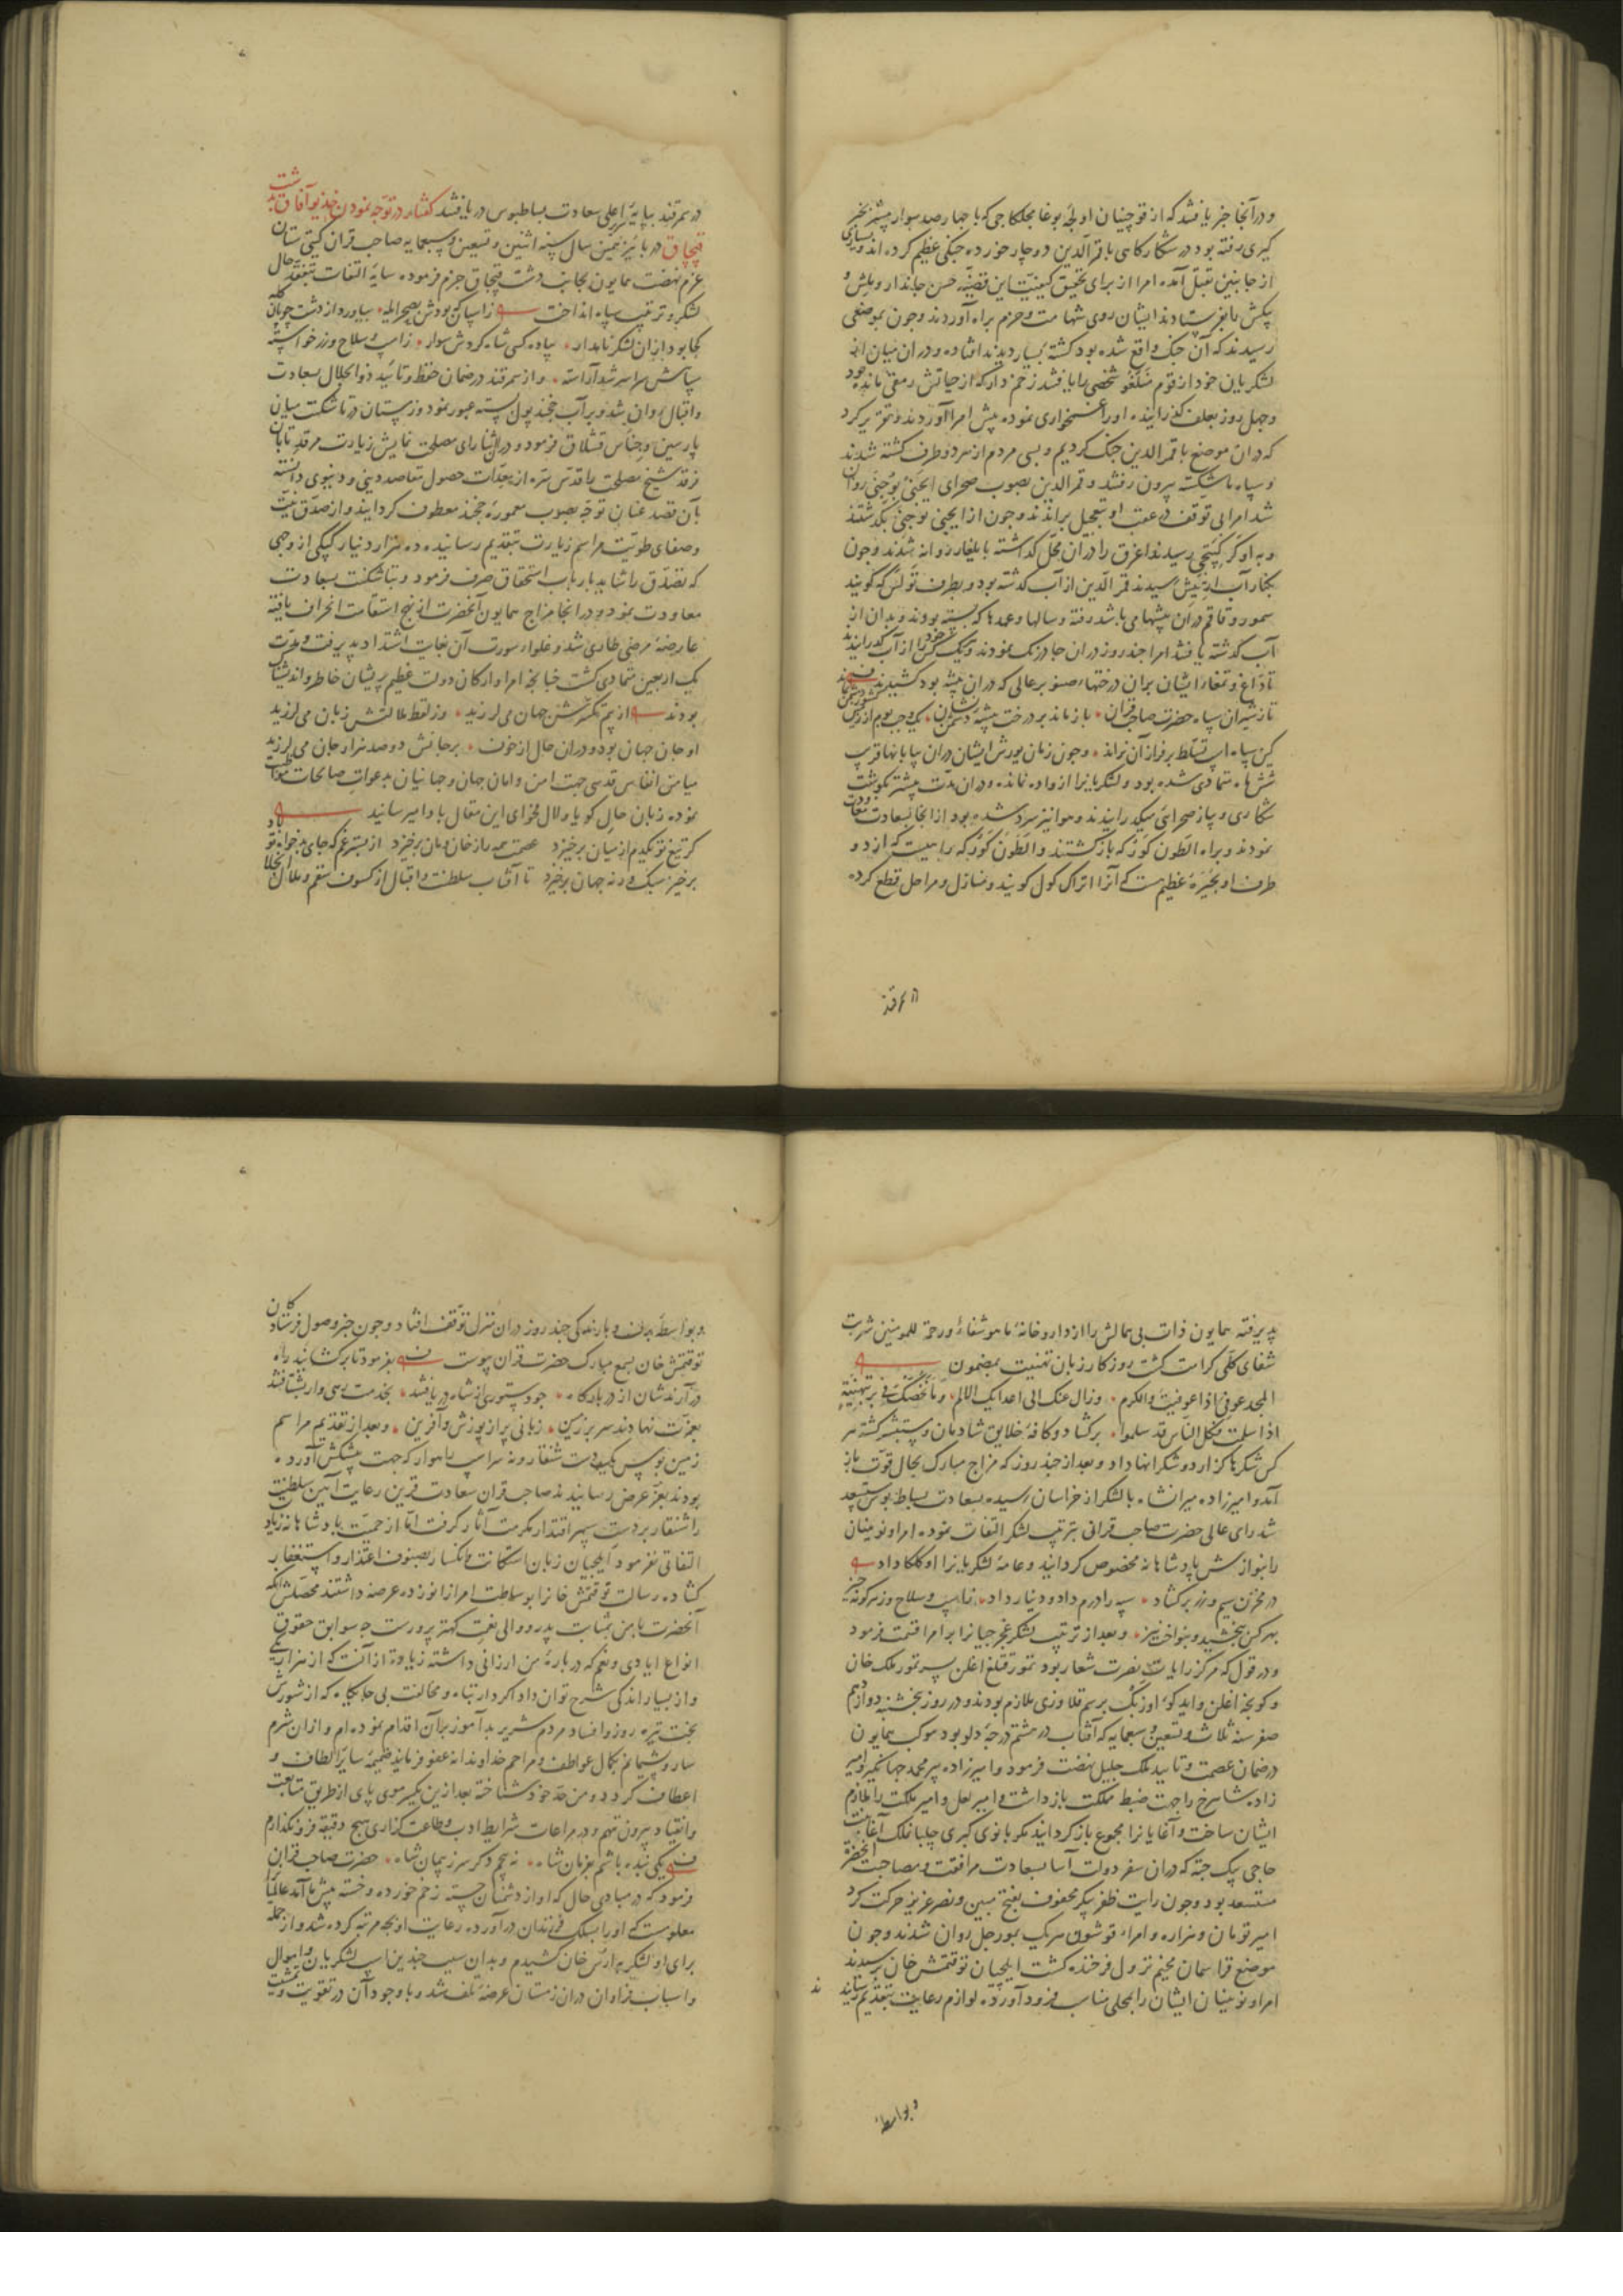 و در آنجا خبر یافتند که از قوچینان اولجه بوغا بجلکاجی که با چهار صد سوار پیشتر بخبر
کیری رفته بود در شکارکاهی با قمر الدین دوچار خورده جنکی عظیم کرده اند و بسیاری
از جانبین بقتل آمده امرا از برای تحقیق کیفیت این قضیه حسن جاندار و
را بفرستادند ایشان روی شهامت و حزم براه آوردند و چون بموضعی
رسیدند که آن جنک واقع شده بود کشته بسیار دیدند افتاده و در ان میان از
لشکریان خود از قوم شخصی را یافتند زخم دار که از حیاتش رمقی مانده بود
و چهل روز بعلف کذرانیده او را غمخواری نموده پیش امرا آوردند و تقریر کرد
که در ان موضع با قمر الدین جنک کردیم و بسی مردم از هر دو طرف کشته شدند
و سپاه ما شکسته بیرون رفتند و قمر الدین بصوب صحرای ایچنی بوچنی روان
شد امرا بی توقف در عقب او بتعجیل براندند و چون از ایچنی بوچنی بکذشتند
و به اوکر کپتچی رسیدند اغرق را در ان محل کذاشته بایلغار روانه شدند و چون
بکنار آب ارتیش رسیدند قمر الدین از آب کذشته بود و بطرف تولس که کویند
سمور و قاقم در ان بیشها می باشد رفته و سالها و عمدها که بسته بودند و بدان از
آب کذشته یافتند امرا چند روز در ان جا درنک نمودند و یک کس خود را از آب کذرانید
تا داغ و تمغا را ایشان بران درختها صنوبر عالی که در ان بیشه بود کشیدند
تا زشیران سپاه حضرت صاحب قران • باز ماند بر درخت بیشه دشمن نشان • یک وجب بوم از زمین
کین سپاه تسلط بر فراز آن نراند • و چون زمان یورش ایشان در ان بیابانها قریب
شش ماه متمادی شده بود و لشکریانرا ازواده نمانده و در ان مدت بیشتر بکوشت
شکاری و پیاز صحرائی میکذرانیدند و هوا نیز سرد شده بود از انجا بسعادت معاودت
نمودند و براه الطون کورکه بازکشتند و الطون کورکه راهیست که از دو
طرف او بحیره عظیمست که آنرا اتراک کول کویند و منازل و مراحل قطع کرده
سمرقند
در سمرقند بپایه سریر اعلی سعادت بساطبوس دریافتند کفتار در توجه نمودن خدیو آفاق بدشت
قپچاق در پائیز همین سال سنه اثنین و تسعین و سبعمایه صاحب قران کیتی ستان
عزم نهضت همایون بجانب دشت قپچاق جزم فرموده سایه التفات بتفقد حال
لشکر و ترتیب سپاه انداخت زاسپان که بودش بصحرا یله • بیاورد از دشت چوپان کله
کجا بود ازان لشکر نامدار • پیاده کسی شاه کردش سوار • زاسپ و سلاح و زر خواسته
سپاهش سراسر شد آراسته • و از سمرقند در ضمان حفظ و تائید ذو الجلال بسعادت
و اقبال روان شد و بر آب خجند پول بسته عبور نمود و زمستان در تاشکنت میان
پارسین و جناس قشلاق فرمود و در اثنا رای مصلحت نمایش زیارت مرقد تابان
فرقد شیخ مصلحت را قدس سره از معدات حصول مقاصد دینی و دنیوی دانسته
بآن قصد عنان توجه بصوب معموره خجند معطوف کردانید و از صدق نیت
و صفای طویت مراسم زیارت بتقدیم رسانیده ده هزار دینار کپکی از وجهی
که تصدق را شاید بارباب استحقاق صرف فرمود و بتاشکنت بسعادت
معاودت نمود و در انجا مزاج همایون آنحضرت از نهج استقامت انحراف یافته
عارضه مرضی طاری شد و غلواء سورت آن بغایت اشتداد پذیرفت و مدت
یک اربعین متمادی کشت چنانچه امرا و ارکان دولت عظیم پریشان خاطر و اندیشناک
بودند از بیم تن جهان می لرزید • وز لفظ ملالتش زبان می لرزید
او جان جهان بود و در ان حال از خوف • بر جانش دو صد هزار جان می لرزید
میامن انفاس قدسی جهت امن و امان جهان و جهانیان بدعوات صالحات مواظبت
نموده زبان حال کویا و لال فحوای این مقال با دا میرسانید
کر تیغ تو یکدم از میان برخیزد عصمت همه را زخان و مان برخیزد از بستر غم که جای بدخواه تو باد
برخیز سبک ورنه جهان برخیزد تا آفتاب سلطنت و اقبال از کسوف سقم و ملال انجلا
پذیرفته همایون ذات بی همالش را از داروخانه ما هو شفاء و رحمة للمومنین شربت
شفای کلی کرامت کشت روزکار زبان تهنیت بمضمون
المجد عوفی اذا عوفیت و الکرم • و زال عنک الی اعدایک الالم • و ما نخصک فی برء بتهنیة
اذا سلمت فکل الناس قد سلموا • برکشاد و کافه خلایق شادمان و مستبشر کشته هر
کس شکرها کزارد و شکرانها داد و بعد از چند روز که مزاج مبارک بحال قوت باز
آمد و امیرزاده میرانشاه با لشکر از خراسان رسیده بسعادت بساط بوس مستسعد
شد رای عالی حضرت صاحب قرانی بترتیب لشکر التفات نموده امرا و نوینان
را بنوازش پادشاهانه مخصوص کردانید و عامه لشکریانرا اوکلکا داد
در مخزن سیم و زر برکشاد • سپه را درم داد و دینار داد • زاسپ و سلاح و زهر کونه چیز
بهر کس ببخشید و بنواخت نیز • و بعد از ترتیب لشکر غجرجیانرا بر امرا قسمت فرمود
و در قول که مرکز رایات نصرت شعار بود تمور قتلغ اغلن پسر تمور ملک خان
و کونجه اغلن و ایدکو اوزبک برسم قلاوزی ملازم بودند و در روز پنجشنبه دوازدهم
صفر سنه ثلاث و تسعین و سبعمایه که آفتاب در هشتم درجه دلو بود موکب همایون
در ضمان عصمت و تایید ملک جلیل نهضت فرمود و امیرزاده پیر محمد جهانکیر و امیر
زاده شاهرخ را جهت ضبط مملکت بازداشت و امیر لعل و امیر ملکت را ملازم
ایشان ساخت و آغایانرا مجموع بازکردانید مکر بانوی کبری چلپانملک آغا بنت
حاجی بیک جته که در ان سفر دولت آسا بسعادت مرافقت و مصاحبت آنحضرت
مستسعد بود و چون رایت ظفر پیکر محفوف بفتح مبین و نصر عزیز حرکت کرد
امیر تومان و هزاره و امراء قوشون هریک بمورجل روان شدند و چون
موضع قراسمان مخیم نزول فرخنده کشت ایلچیان توقتمش خان برسیدند
امرا و نوینان ایشان را بمحلی مناسب فرود آورده لوازم رعایت بتقدیم رسانیدند
و بواسطه
و بواسطه برف و بارندکی چند روز در ان منزل توقف افتاد و چون خبر وصول فرستادکان
توقتمش خان بسمع مبارک حضرت قران پیوست بفرمود تا برکشایند راه
درآرندشان از در بارکاه • چو دستوری از شاه دریافتند • بخدمت رهی وار بشتافتند
بعزت نهادند سر بر زمین • زبانی پر از پوزش و آفرین • و بعد از تقدیم مراسم
زمین بوس یکدست شنقار و نه سر اسپ راهوار که جهت پیشکش آورده
بودند بعز عرض رسانیدند صاحب قران سعادت قرین رعایت آیین سلطنت
را شنقار بر دست سپهر اقتدار مکرمت آثار کرفت اما از حمیت پادشاهانه زیاد
التفاتی نفرمود ایلچیان زبان استکانت و انکسار بصنوف اعتذار و استغفار
کشاده رسالت توقتمش خانرا بوساطت امرا زانو زده عرضه داشتند محصلش آنکه
آنحضرت با من بمثابت پدر و والی نعمت کهتر پرورست چه سوابق حقوق
انواع ایادی و نعم که در باره من ارزانی داشته زیاده از آنست که از هزار یکی
و از بسیار اندکی شرح توان داد اکر دار تباه و مخالفت بی جایکاه که از شورش
بخت تیره روز و افساد مردم شریر بد آموز بران اقدام نموده ام و ازان شرم
سار و پشیمانم بکمال عواطف و مراحم خداوندانه عفو فرماید ضمیمه سایر الطاف و
اعطاف کردد و من حد خود شناخته بعد ازین یکسر موی پای از طریق متابعت
و انقیاد بیرون ننهم و در مراعات شرایط ادب و طاعت کذاری هیچ دقیقه فرونکذارم
یکی بنده باشم بفرمان شاه • نه پیچم دکر سر ز پیمان شاه • حضرت صاحب قران
فرمود که در مبادی حال که او از دشمنان جسته زخم خورده و خسته پیش ما آمد عالمیانرا
معلومست که او را بسلک فرزندان درآورده رعایت او بچه مرتبه کرده شد و از جمله
برای او لشکر به ارس خان کشیدم و بدان سبب چندین اسپ لشکریان و اموال
و اسباب فراوان در ان زمستان عرضه تلف شد و با وجود آن در تقویت و تمشیت